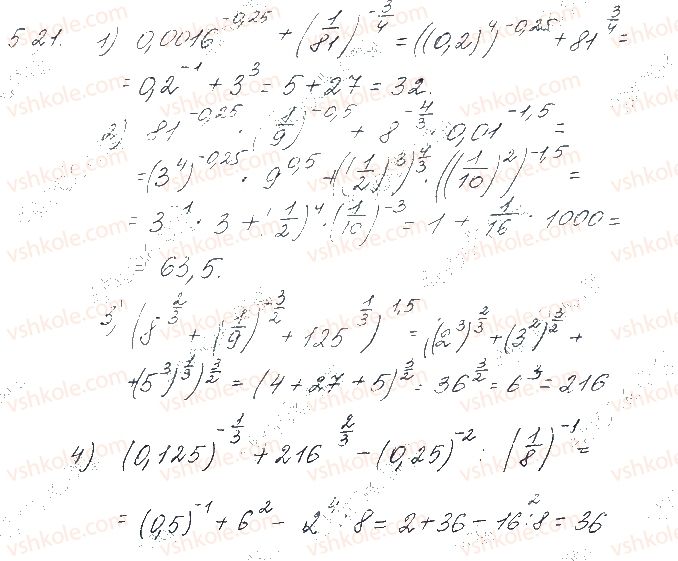 5.21. 1) 0,0016^{-0,25} + (1/81)^{-3/4} = ((0,2)^4)^{-0,25} + 81^{3/4} =
= 0,2^{-1} + 3^3 = 5 + 27 = 32.
2) 81^{-0,25} · (1/9)^{-0,5} + 8^{-4/3} · 0,01^{-1,5} =
= (3^4)^{-0,25} · 9^{0,5} + ((1/2)^3)^{4/3} · ((1/10)^2)^{-1,5} =
= 3^{-1} · 3 + (1/2)^4 · (1/10)^{-3} = 1 + 1/16 · 1000 =
= 63,5.
3) (8^{2/3} + (1/9)^{-3/2} + 125^{1/3})^{1,5} = ((2^3)^{2/3} + (3^2)^{3/2} +
+ (5^3)^{1/3})^{3/2} = (4 + 27 + 5)^{3/2} = 36^{3/2} = 6^3 = 216
4) (0,125)^{-1/3} + 216^{2/3} - (0,25)^{-2} : (1/8)^{-1} =
= (0,5)^{-1} + 6^2 - 2^4 : 8 = 2 + 36 - 16 : 8 = 36
vshkole.com